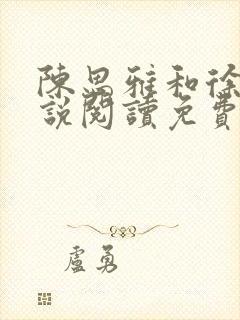 陳思雅和徐
說閱讀免費
盧勇